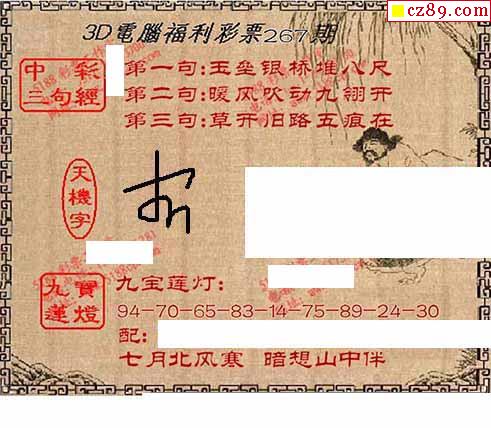 cz89.com
3D電腦福利彩票267期
中彩
三句經
第一句:玉垒银桥堆八尺
第二句:暖风吹动九翎开
第三句:草开旧路五痕在
天機字
九寶蓮燈
九宝莲灯:
94-70-65-83-14-75-89-24-30
配:
七月北风寒 暗想山中伴